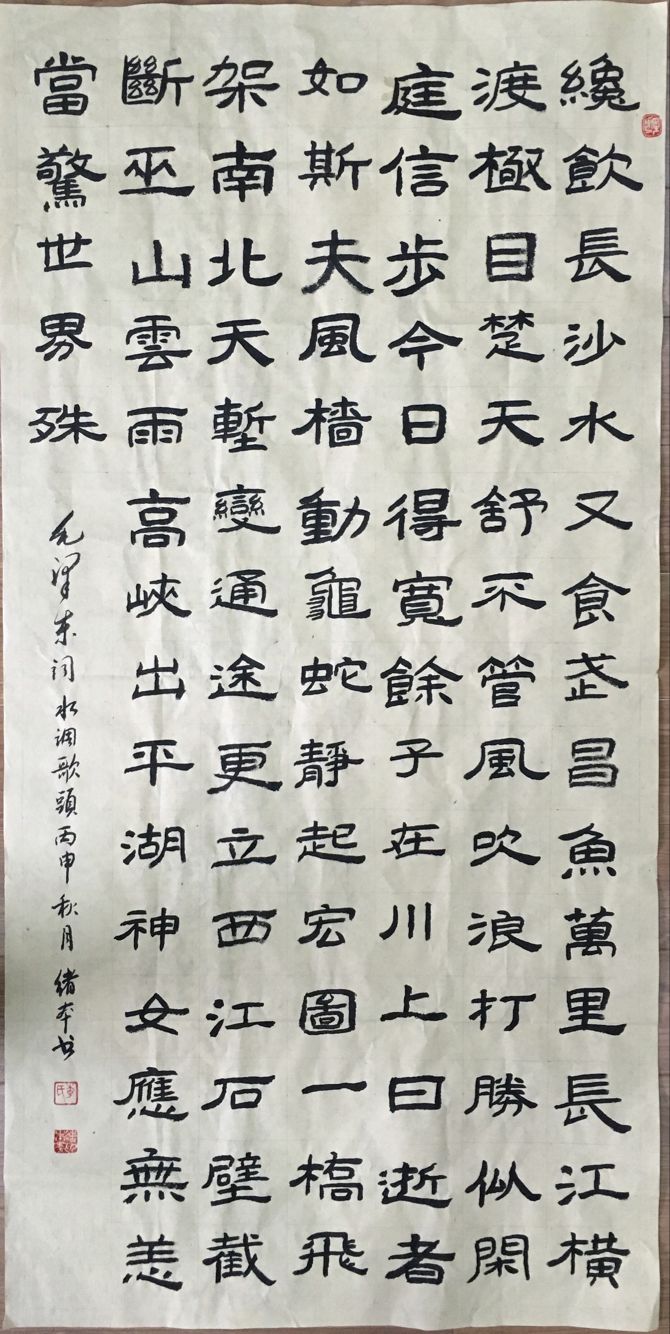 纔飲長沙水又食武昌魚萬里長江橫
渡極目楚天舒不管風吹浪打勝似閑
庭信步今日得寬餘子在川上曰逝者
如斯夫風檣動龜蛇靜起宏圖一橋飛
架南北天塹變通途更立西江石壁截
斷巫山雲雨高峽出平湖神女應無恙
當驚世界殊
毛澤东词水调歌頭丙申秋月緒本书